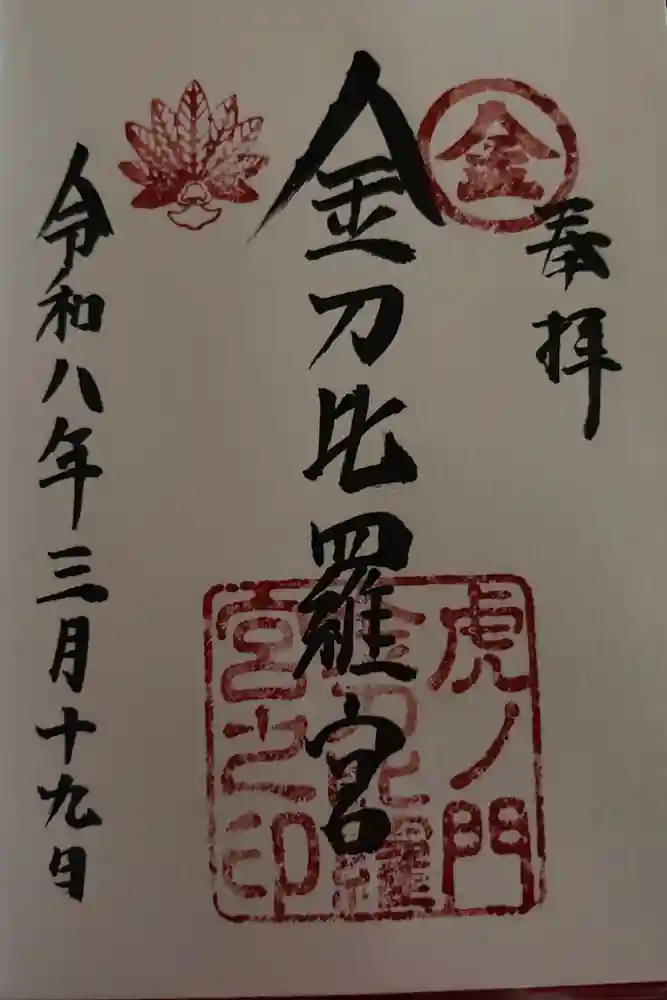 金
奉拝
金刀比羅宮
虎ノ門
金刀比羅
宮之印
令和八年三月十九日